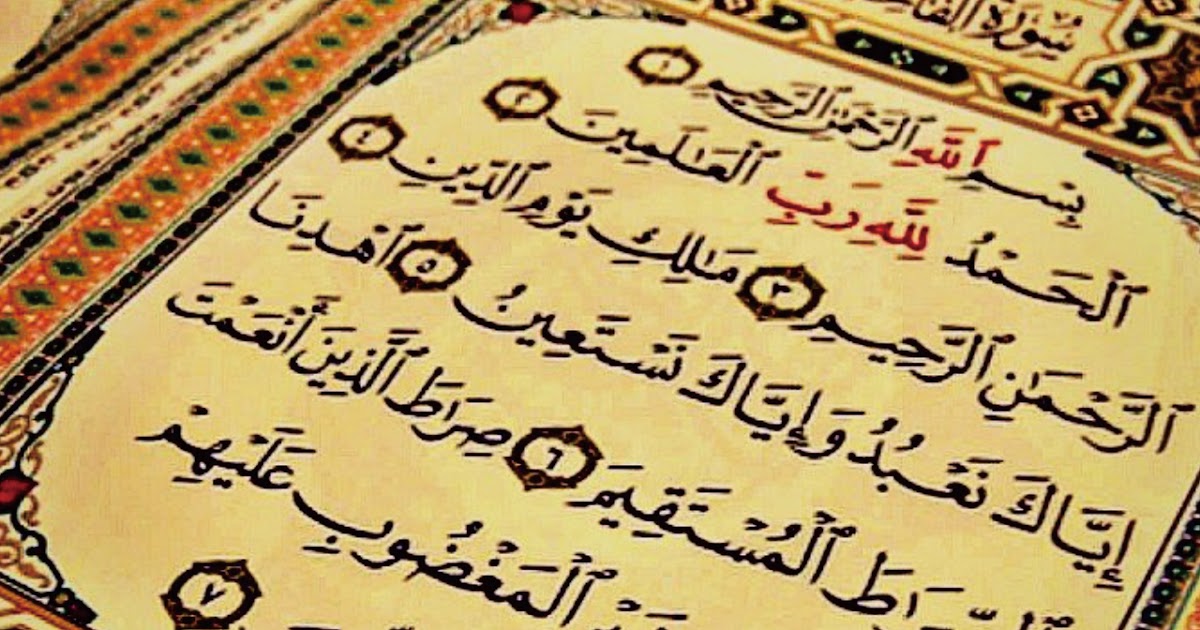 سُورَةُ
بِسْمِ ٱللَّهِ ٱلرَّحْمَٰنِ ٱلرَّحِيمِ ١
ٱلْحَمْدُ لِلَّهِ رَبِّ ٱلْعَٰلَمِينَ ٢
ٱلرَّحْمَٰنِ ٱلرَّحِيمِ ٣ مَٰلِكِ يَوْمِ ٱلدِّينِ ٤
إِيَّاكَ نَعْبُدُ وَإِيَّاكَ نَسْتَعِينُ ٥ ٱهْدِنَا
ٱلْمُسْتَقِيمَ ٦ صِرَٰطَ ٱلَّذِينَ أَنْعَمْتَ
ٱلْمَغْضُوبِ عَلَيْهِمْ
٧